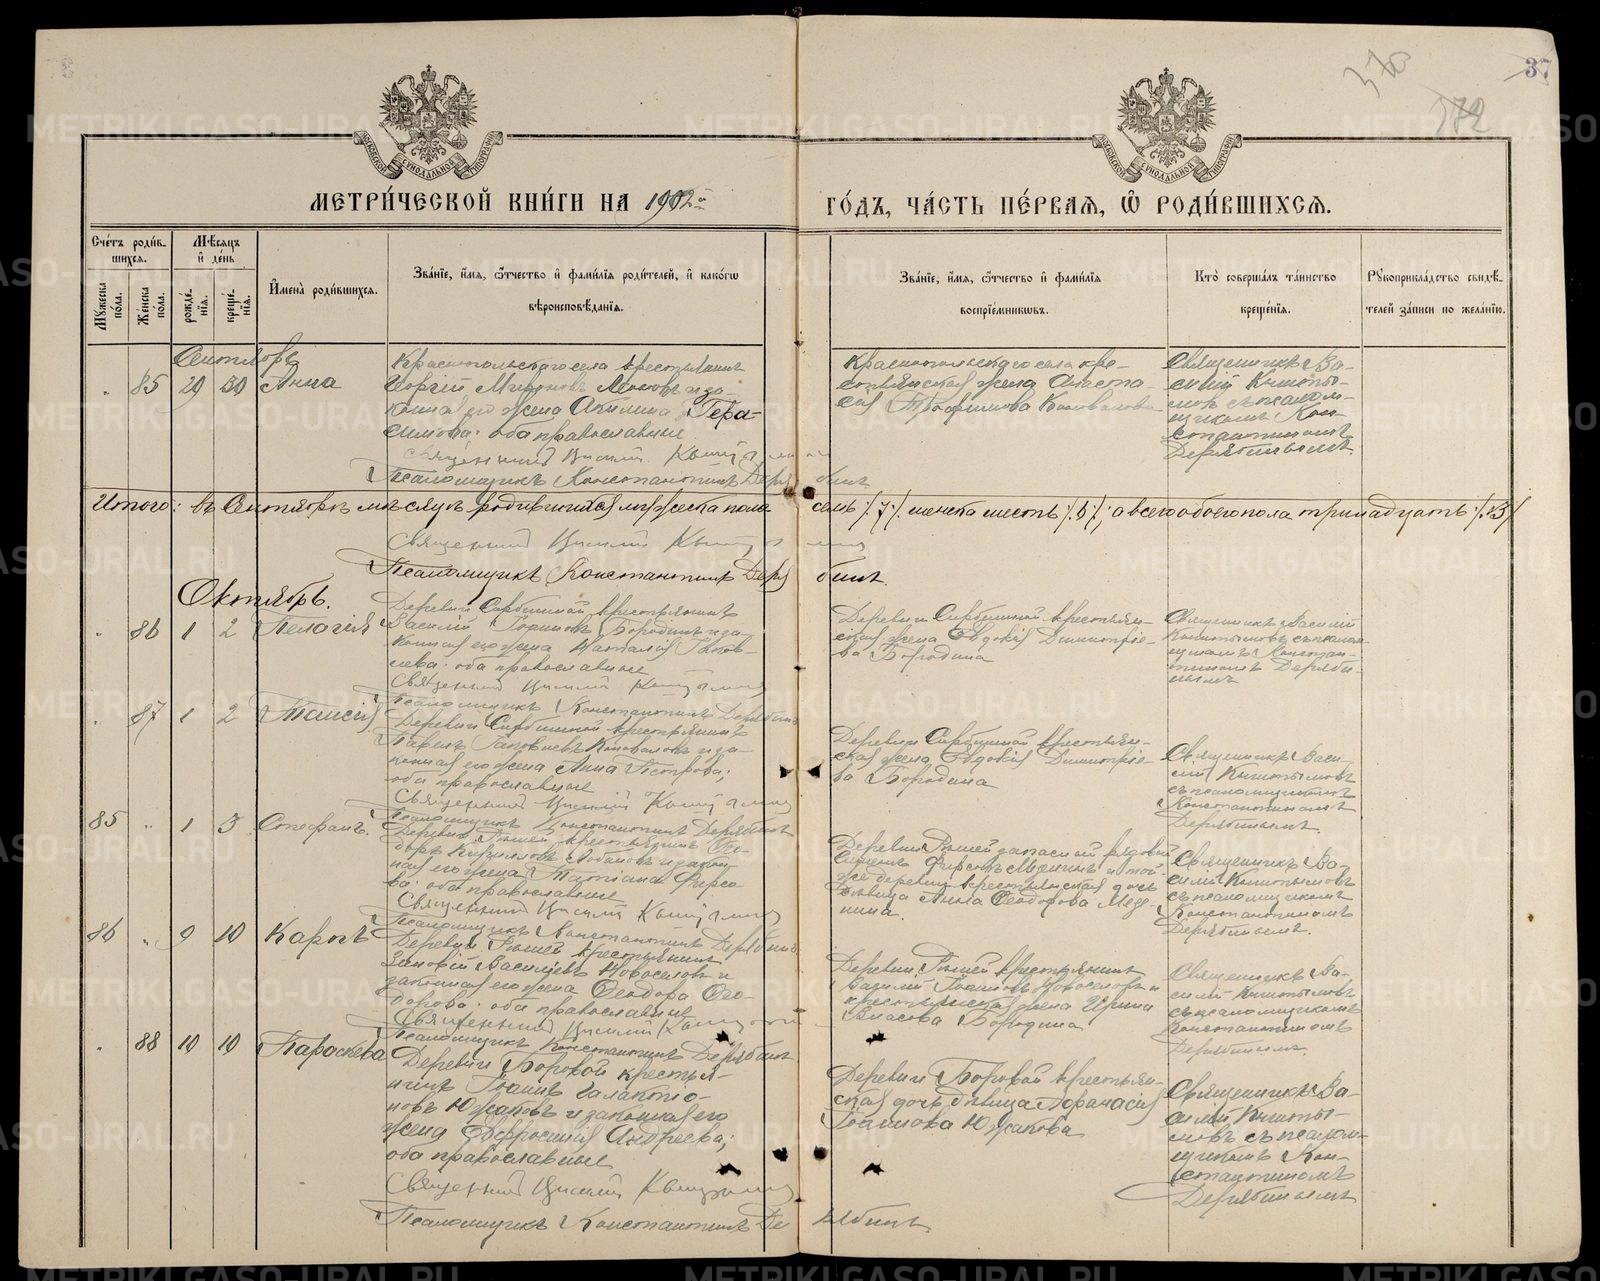 37
370
372
МЕТРИ́ЧЕСКОЙ КНИ́ГИ НА 1902й ГО́ДЪ, ЧА́СТЬ ПЕ́РВАЯ, Ѡ РОДИ́ВШИХСЯ.
Сче́тъ роди́в-
шихся.
Мꙋжеска по́ла.
Же́нска по́ла.
Мѣ́сяцъ и҆ де́нь
рожде́-
нїя.
креще́-
нїя.
И҆мена̀ роди́вшихся.
Зва́нїе, и҆́мя, ѻ҆́тчество и҆ фами́лїя роди́телей, и҆ како́гѡ
вѣроисповѣ́данїя.
Зва́нїе, и҆́мя, ѻ҆́тчество и҆ фами́лїя
воспрїе́мникѡвъ.
Кто̀ соверша́лъ та́инство
креще́нїя.
Рꙋкоприкла́дство свидѣ́-
телей за́писи по жела́нїю.
Сентябрь
85 29 30 Анна
Краснопольскаго села крестьянинъ
Георгій Мироновъ и за-
конная его жена Акилина Гера-
симова; оба православные
Священникъ Василій
Псаломщикъ Константинъ Дерябинъ
Краснопольскаго села кре-
стьянская жена Анаста-
сія Трофимова Коновалова
Священникъ Ва-
силій
съ псалом-
щикомъ Кон-
стантиномъ
Дерябинымъ.
Итого: въ Сентябрѣ мѣсяцѣ родившихся мужеска пола семь /7/. женска шесть /6/, а всего обоего пола тринадцать /13/
Священникъ Василій
Псаломщикъ Константинъ Дерябинъ.
Октябрь.
86 1 2 Пелагія
Деревни крестьянинъ
Василій Іоанновъ Бородинъ и за-
конная его жена Наталія Іаков-
лева; оба православные
Священникъ Василій
Псаломщикъ Константинъ Дерябинъ
Деревни крестьян-
ская жена Евдокія Димитріе-
ва Бородина
Священникъ Василій
съ псалом-
щикомъ Констан-
тиномъ Деряби-
нымъ
87 1 2 Таисія
Деревни крестьянинъ
Іаковлевъ Коноваловъ и за-
конная его жена Анна Петрова;
оба православные
Священникъ Василій
Псаломщикъ Константинъ Дерябинъ
Деревни крестьян-
ская жена Евдокія Димитріе-
ва Бородина
Священникъ Васи-
лій
съ псаломщикомъ
Константиномъ
Дерябинымъ.
85 1 3 Стефанъ.
Деревни крестьянинъ Ѳео-
доръ Кирилловъ и закон-
ная его жена Татіана Фирсо-
ва; оба православные
Священникъ Василій
Псаломщикъ Константинъ Дерябинъ
Деревни запасный рядовой
Фирсовъ и той-
же деревни крестьянская дочь
дѣвица Анна Ѳеодорова
Священникъ Ва-
силій
съ псаломщикомъ
Константиномъ
Дерябинымъ.
86 9 10 Карпъ
Деревни крестьянинъ
Зиновій Васильевъ Новоселовъ и
законная его жена Ѳеодора Ѳео-
дорова; оба православные
Священникъ Василій
Псаломщикъ Константинъ Дерябинъ
Деревни крестьянинъ
Василій Іоанновъ Новоселовъ и
крестьянская жена Ирина
Власова Бородина
Священникъ Ва-
силій
съ псаломщикомъ
Константиномъ
Дерябинымъ.
88 10 10 Параскева
Деревни Боровой крестья-
нинъ Іоаннъ Галактіо-
новъ Южаковъ и законная его
жена Евфросинія Андреева;
оба православные
Священникъ Василій
Псаломщикъ Константинъ Дерябинъ
Деревни Боровой крестьян-
ская дочь дѣвица Афанасія
Іоаннова Южакова
Священникъ Ва-
силій
съ псалом-
щикомъ Кон-
стантиномъ
Дерябинымъ
METRIKI.GASO-URAL.RU